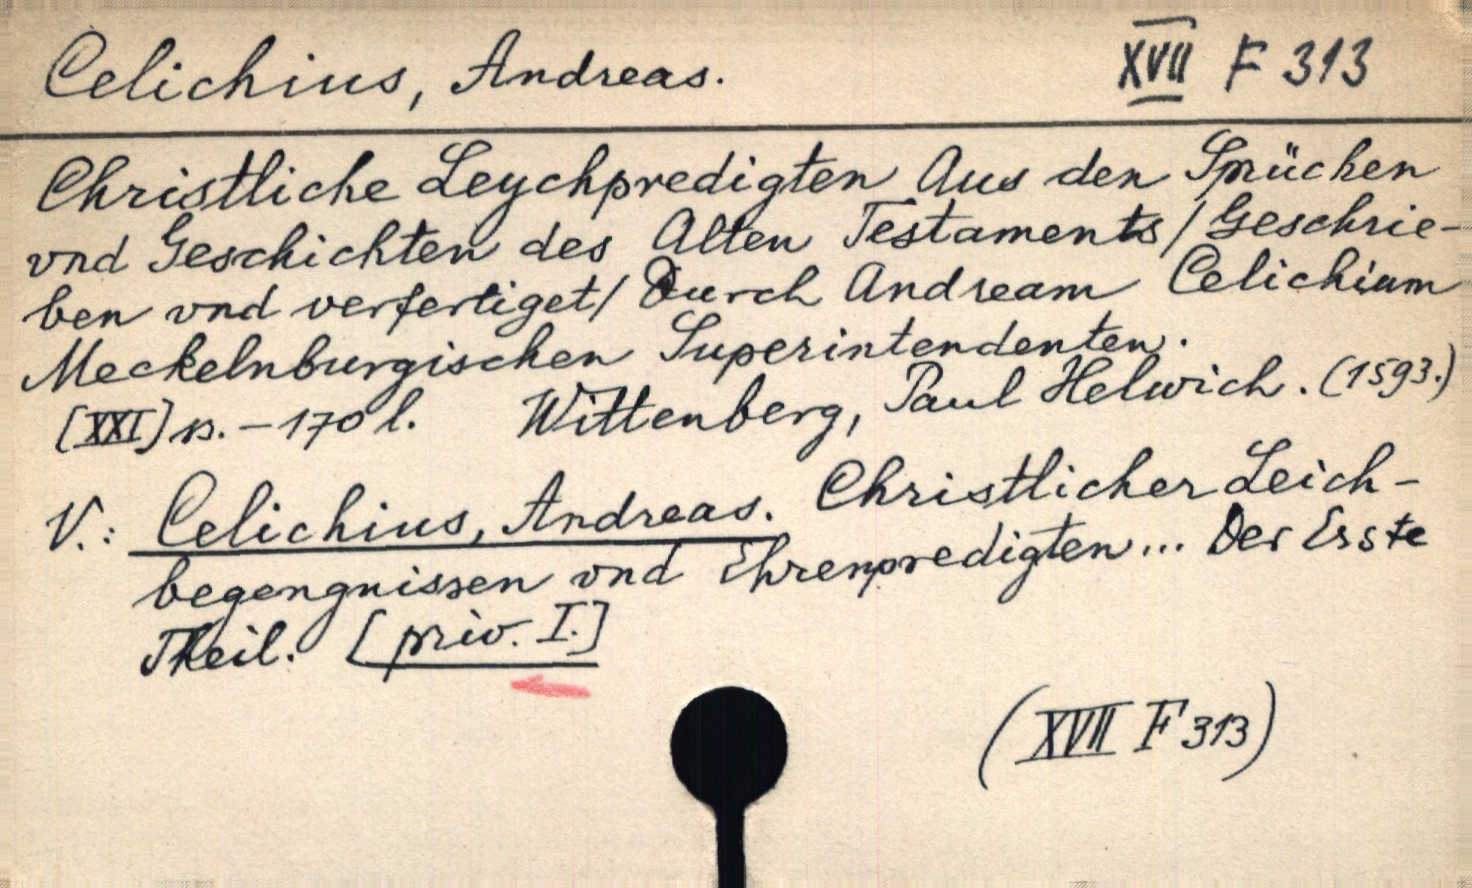 Celichius, Andreas. XVII F 313
Christliche Leychpredigten Aus den Sprüchen
vnd Geschichten des Alten Testaments/Geschrie-
ben vnd verfertiget/ Durch Andream Celichium
Meckelnburgischen Superintendenten.
[XXI] s. - 170 l. Wittenberg, Paul Helwich. (1593.)
V.: Celichius, Andreas. Christlicher Leich-
begengnissen vnd Ehrenpredigten... Der Erste
Theil. [priv. I.]
(XVII F 313)